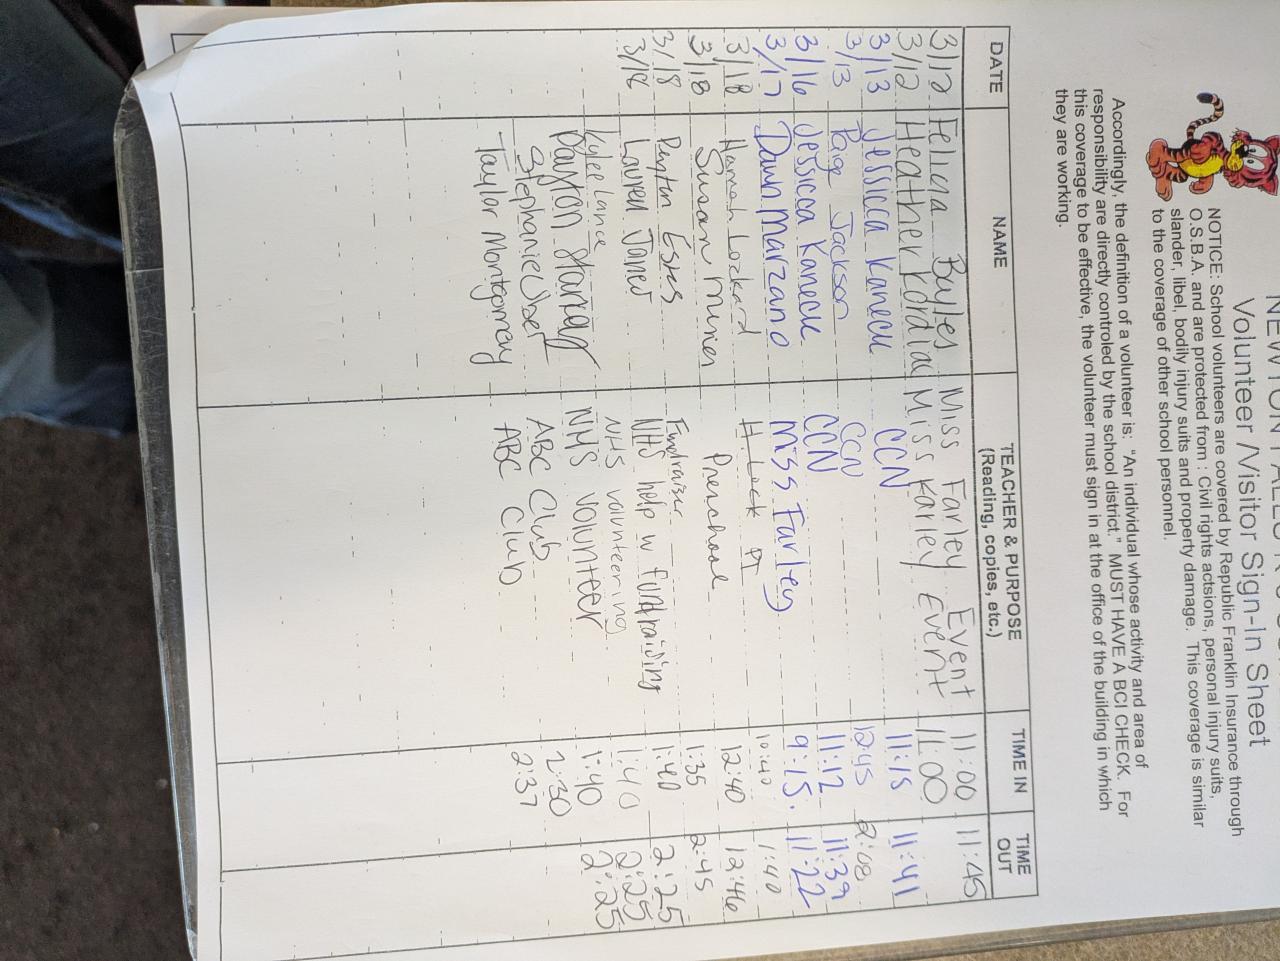 Volunteer /Visitor Sign-In Sheet
NOTICE: School volunteers are covered by Republic Franklin Insurance through
O.S.B.A. and are protected from : Civil rights actsions, personal injury suits,
slander, libel, bodily injury suits and property damage. This coverage is similar
to the coverage of other school personnel.
Accordingly, the definition of a volunteer is: "An individual whose activity and area of
responsibility are directly controled by the school district." MUST HAVE A BCI CHECK. For
this coverage to be effective, the volunteer must sign in at the office of the building in which
they are working.
DATE NAME TEACHER & PURPOSE (Reading, copies, etc.) TIME IN TIME OUT
3/12 Felicia Buyles Miss Farley Event 11:00 11:45
3/12 Heather Kordial Miss Farley Event 11:00
3/13 Jessicca Kaneck CCN 11:15 11:41
3/13 Page Jackson CCN 12:45 2:08
3/16 Jessicca Kaneck CCN 11:12 11:39
3/17 Dawn Marzano Miss Farley 9:15 11:22
3/18 Hannah Lockard H. Lock PT 10:40 1:40
3/18 Susan Miner 12:40 12:46
3/18 Payton Estes Fundraiser 1:35 2:45
3/18 Lauren Janev NHS help w fundraising 1:40 2:25
Kylee Lance NHS volunteering 1:40 2:25
Dayton NHS volunteer 1:40 2:25
Stephanie Usel ABC Club 2:30
Taylor Montgomery ABC Club 2:37